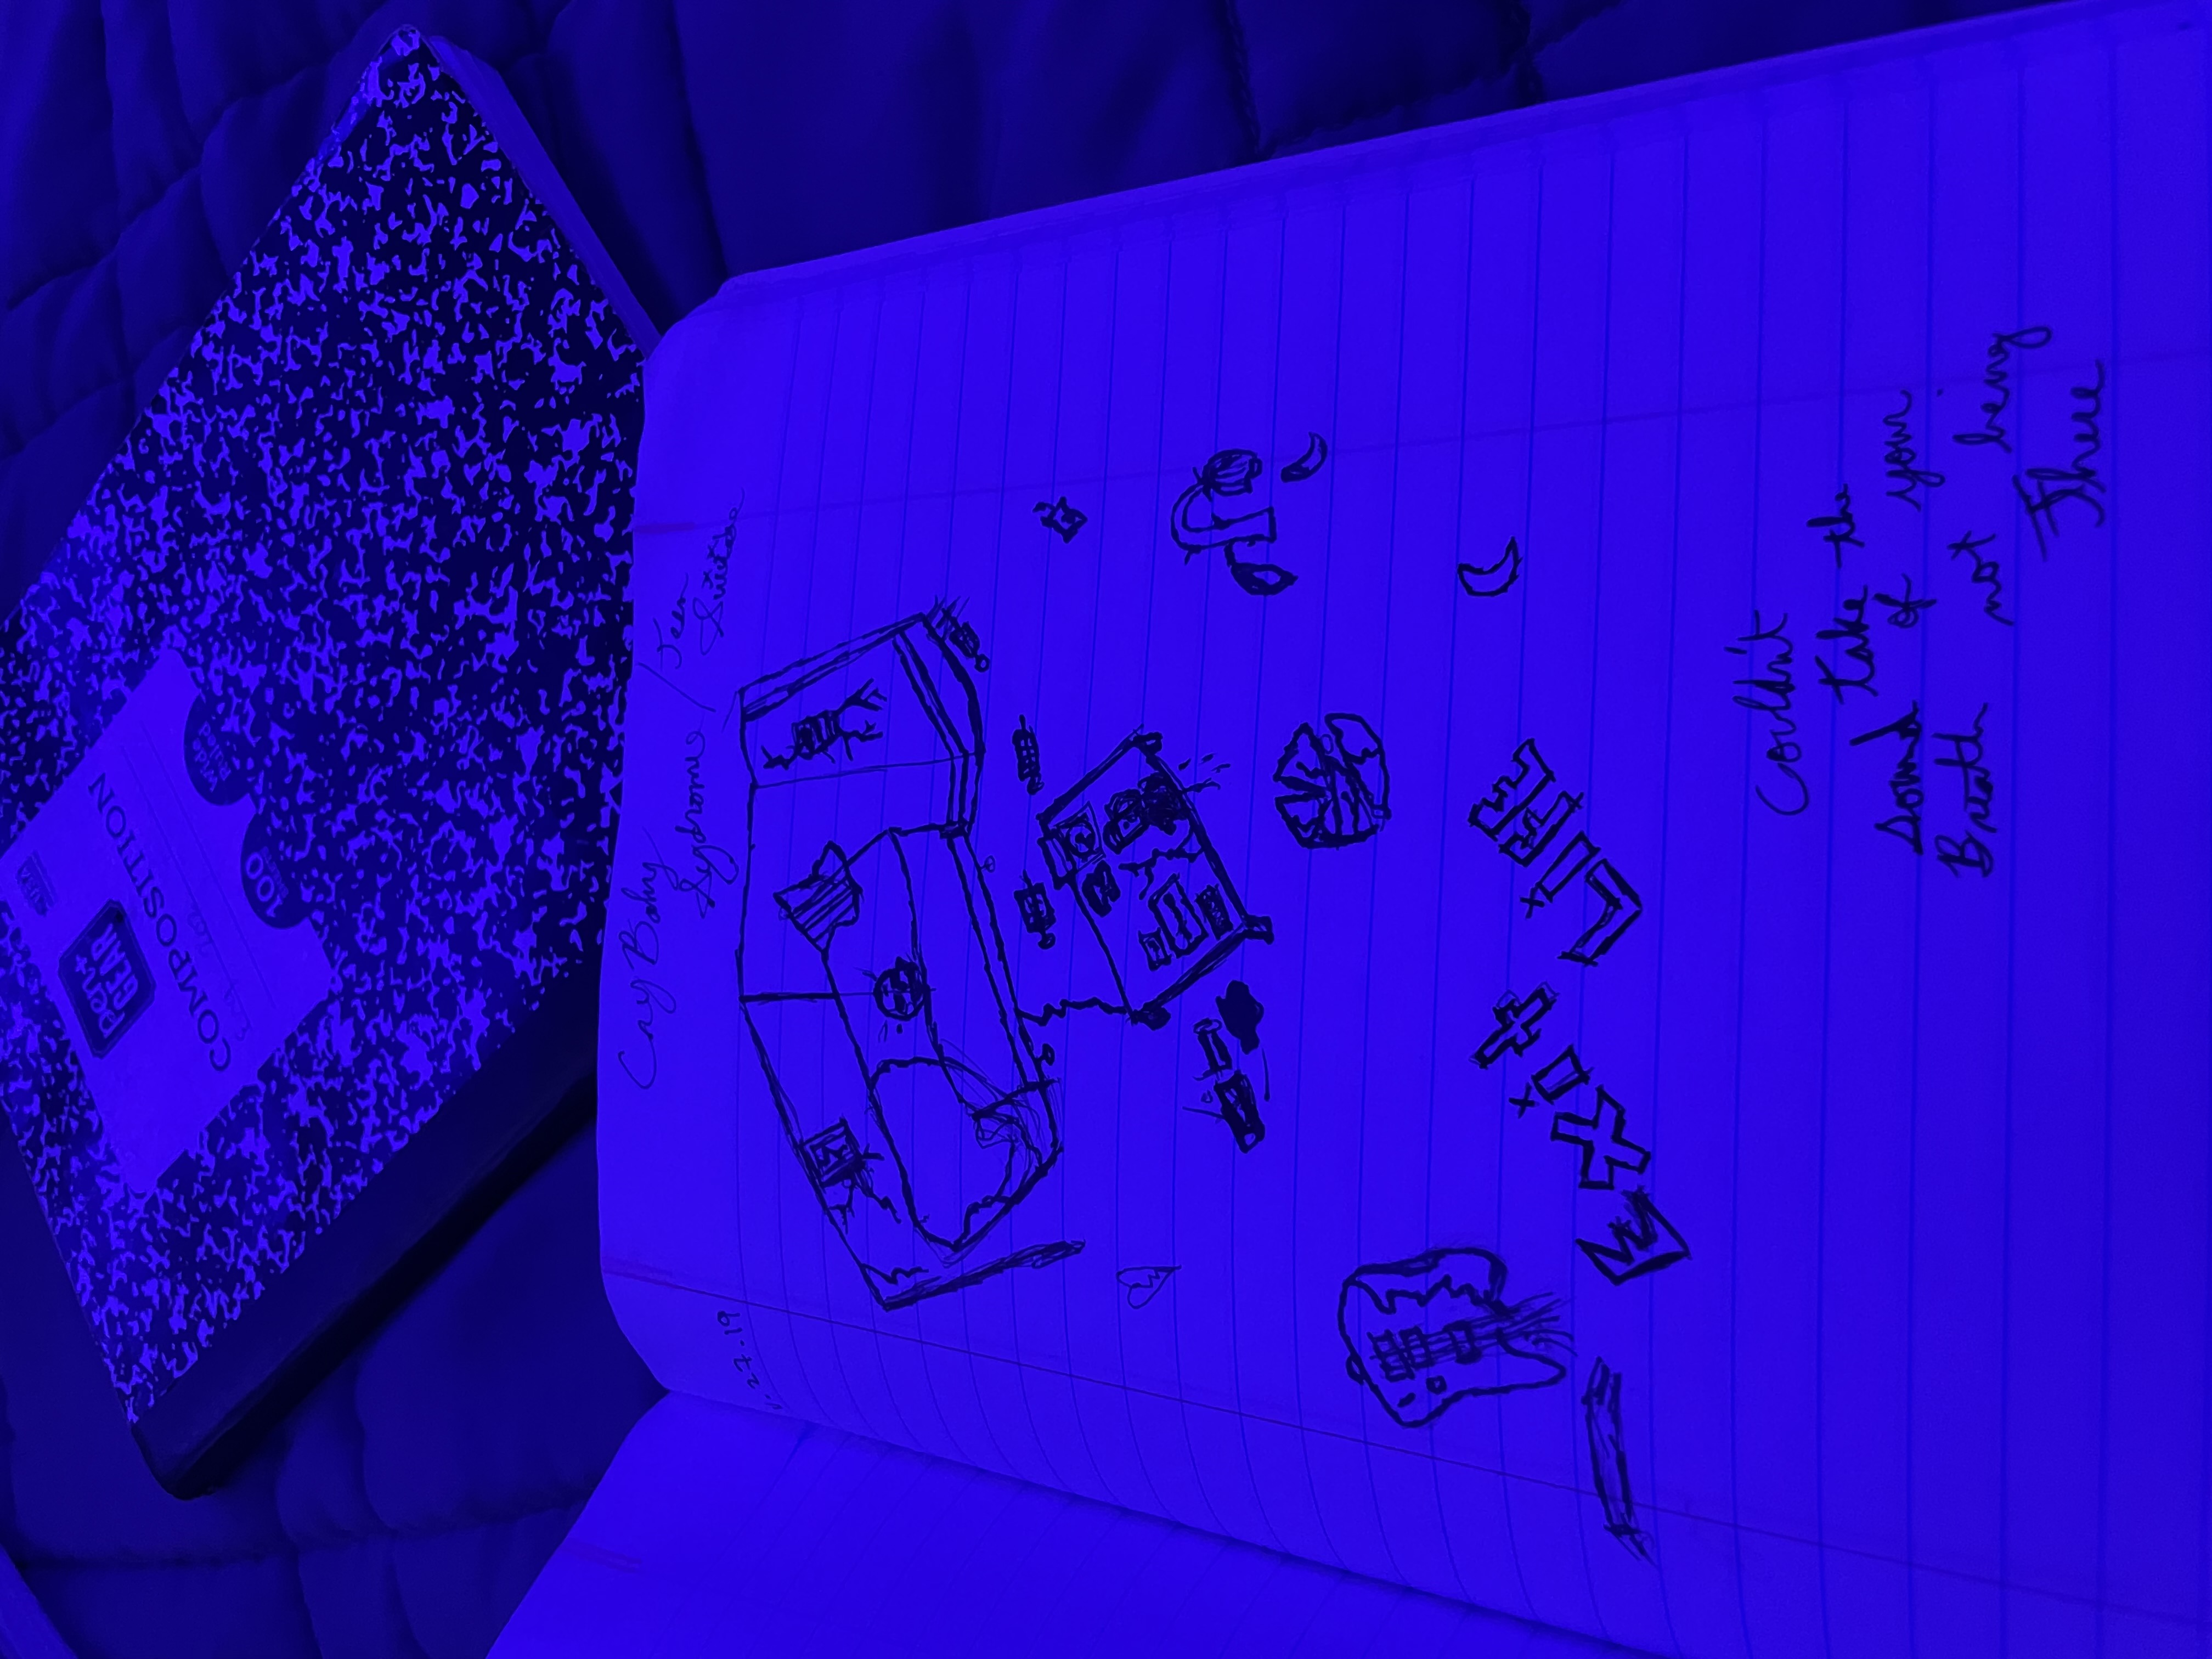 Cry Baby / Teen
Sydrome Suicide
27.19
EXit LiFE
Couldn't
take the
sound of your
Breath not being
There
COMPOSITION
Pen+
GEAR
100
wide
Ruled